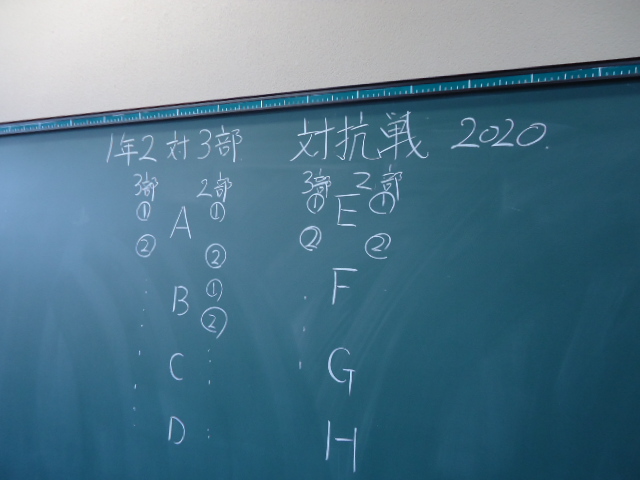 1年2対3部 対抗戦 2020.
3部 2部 3部 2部
① A ① ① E ①
② ② ② ②
B ① F
②
C G
D H